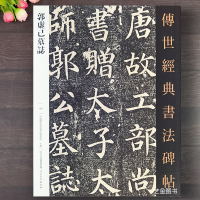 傳世經典書法碑帖
唐故工部尚
書贈太子太
師郭公墓誌
郭虛己墓誌